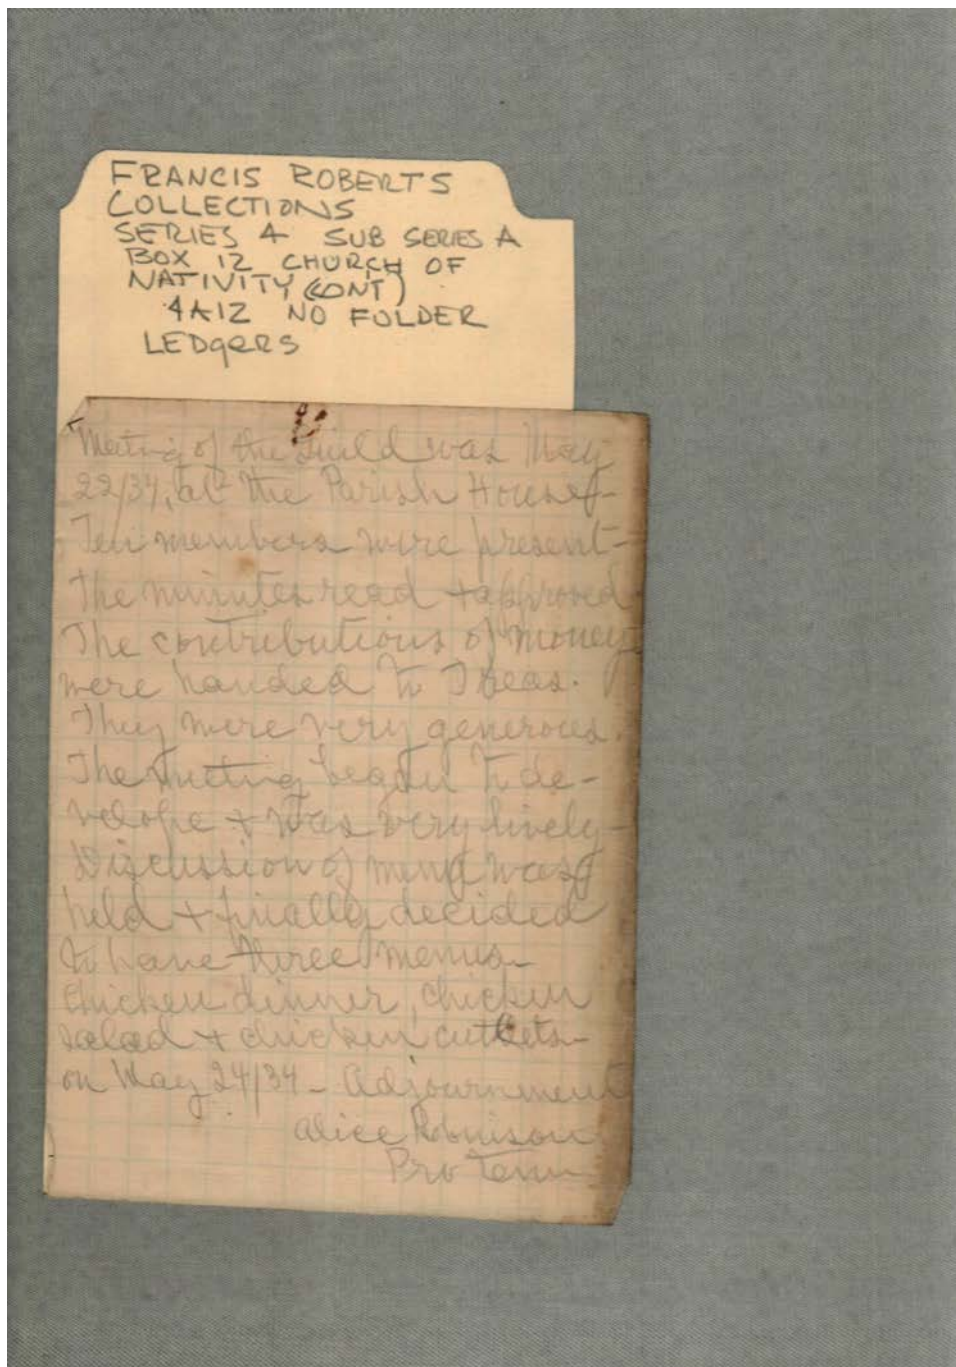 FRANCIS ROBERTS
COLLECTIONS
SERIES 4 SUB SERIES A
BOX 12 CHURCH OF
NATIVITY (CONT)
4A12 NO FOLDER
LEDgERS
Meeting of the Guild was May
22/34, at the Parish House-
Ten members were present-
The minutes read + approved
The contributions of money
were handed to Treas.
They were very generous.
The meeting began to de-
velope + was very lively-
Discussion of menu was
held + finally decided
to have three menus-
Chicken dinner, chicken
salad + chicken cutlets-
on May 24/34 - Adjournment
Alice Robinson
Pro Tem